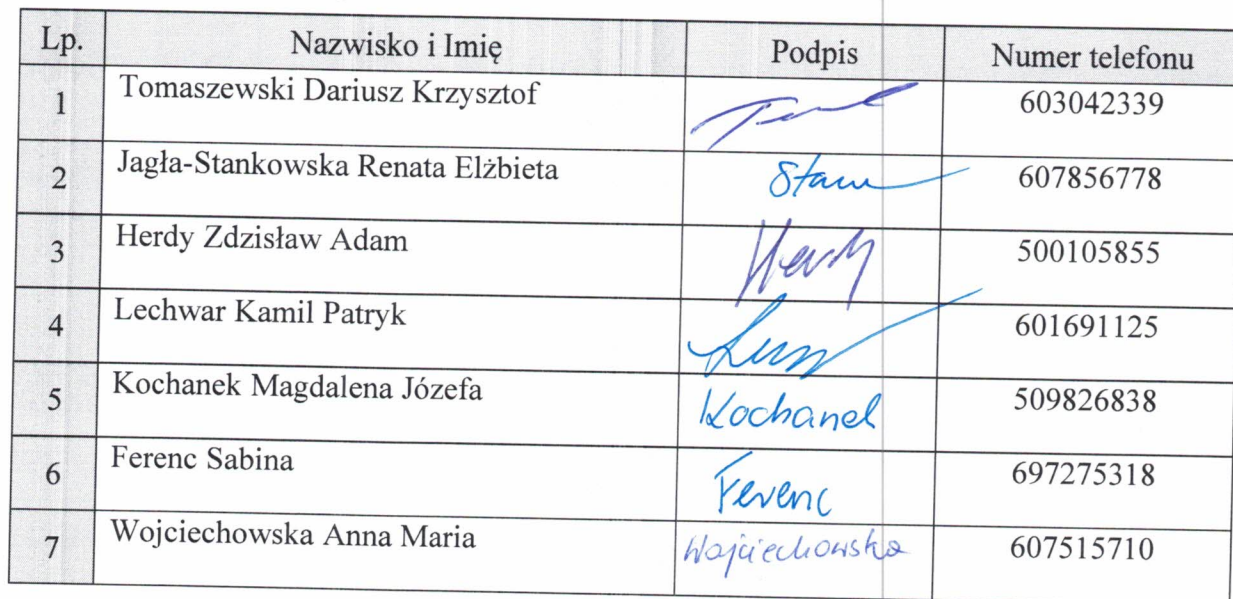 Lp. Nazwisko i Imię Podpis Numer telefonu
1 Tomaszewski Dariusz Krzysztof 603042339
2 Jagła-Stankowska Renata Elżbieta Stan 607856778
3 Herdy Zdzisław Adam Herdy 500105855
4 Lechwar Kamil Patryk 601691125
5 Kochanek Magdalena Józefa Kochanek 509826838
6 Ferenc Sabina Ferenc 697275318
7 Wojciechowska Anna Maria Wojciechowska 607515710